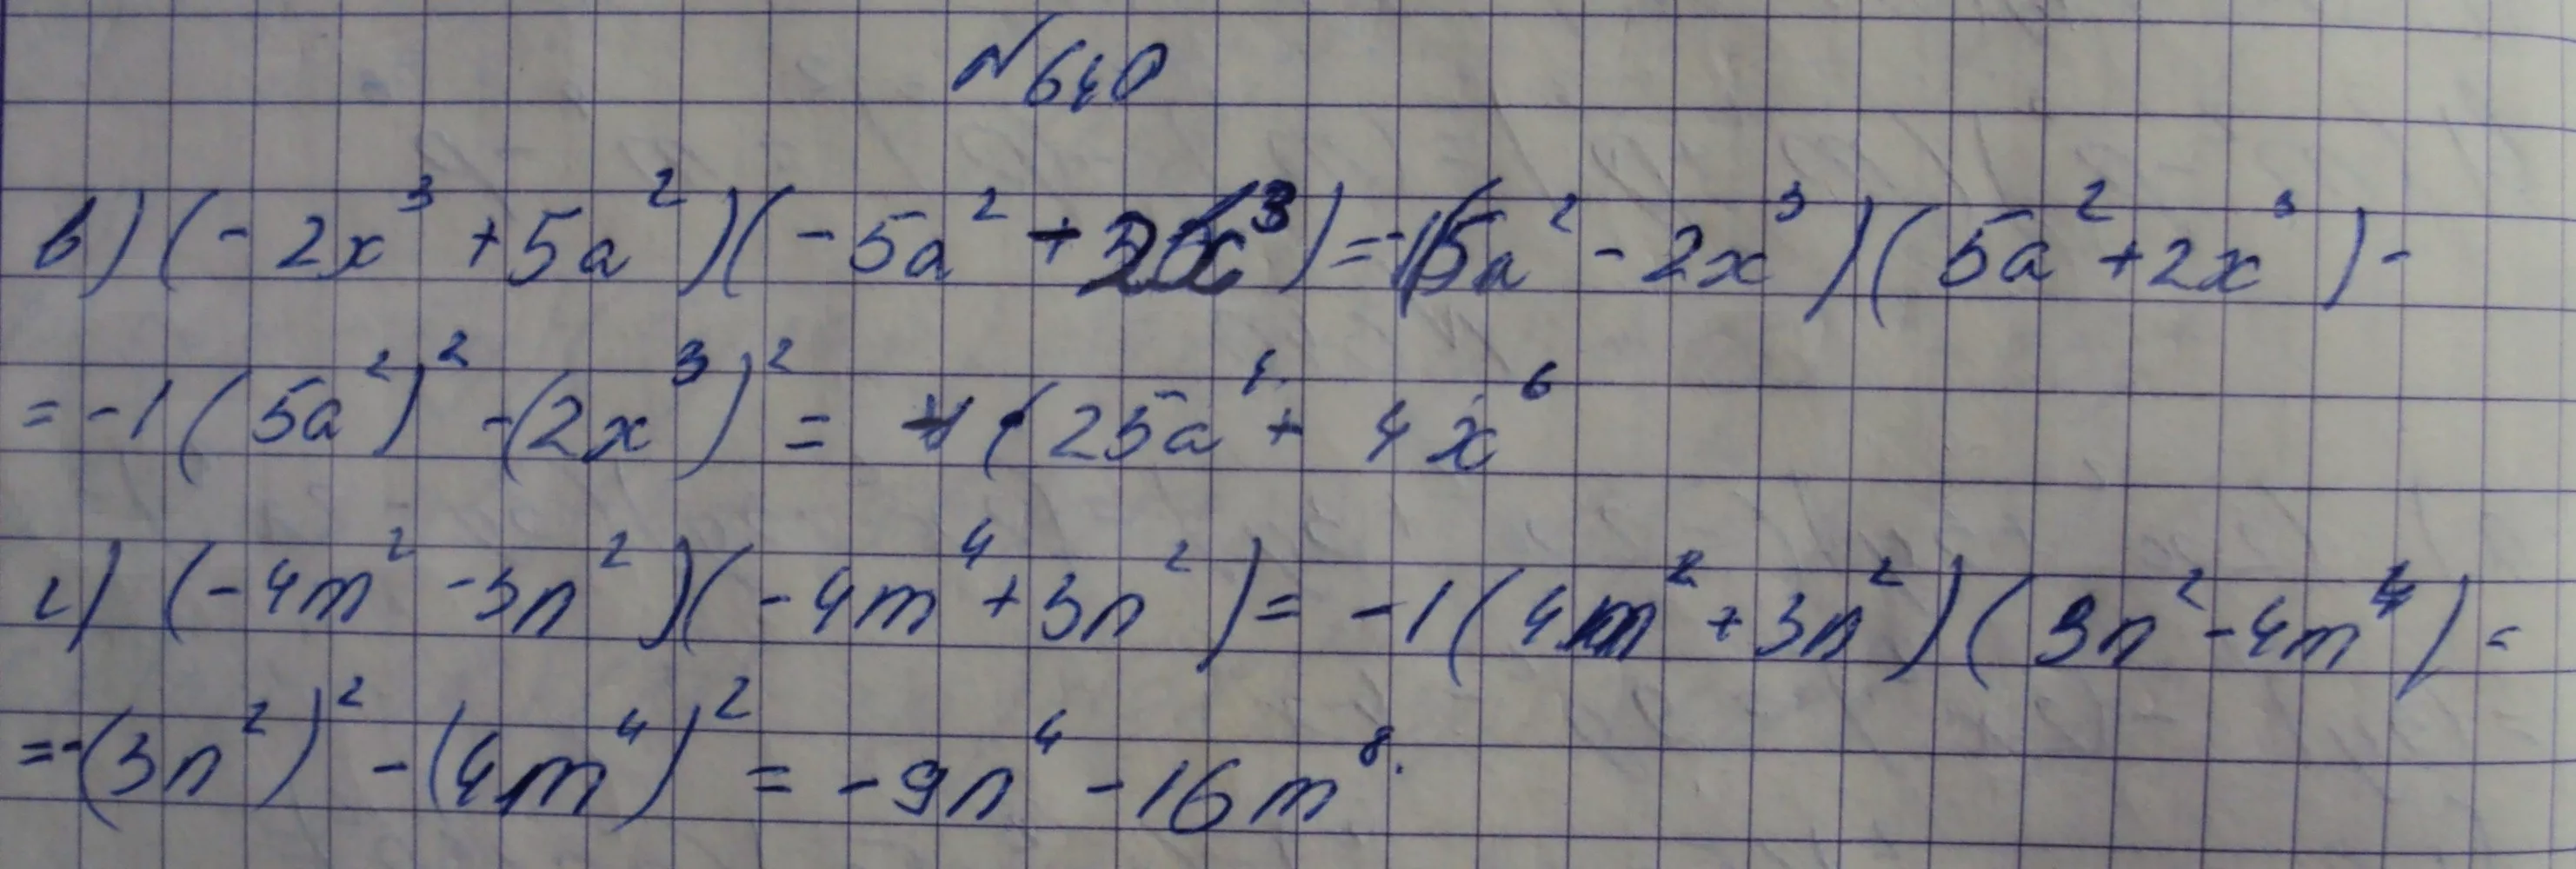 №640
в) (-2x³+5a²)(-5a²-2x³)=-1(5a²-2x³)(5a²+2x³)-
=-1(5a²)²-(2x³)²= (25a⁴+4x⁶
г) (-4m²-3n²)(-4m⁴+3n²)=-1(4m²+3n²)(3n²-4m⁴)=
=-(3n²)²-(4m⁴)²=-9n⁴-16m⁸.